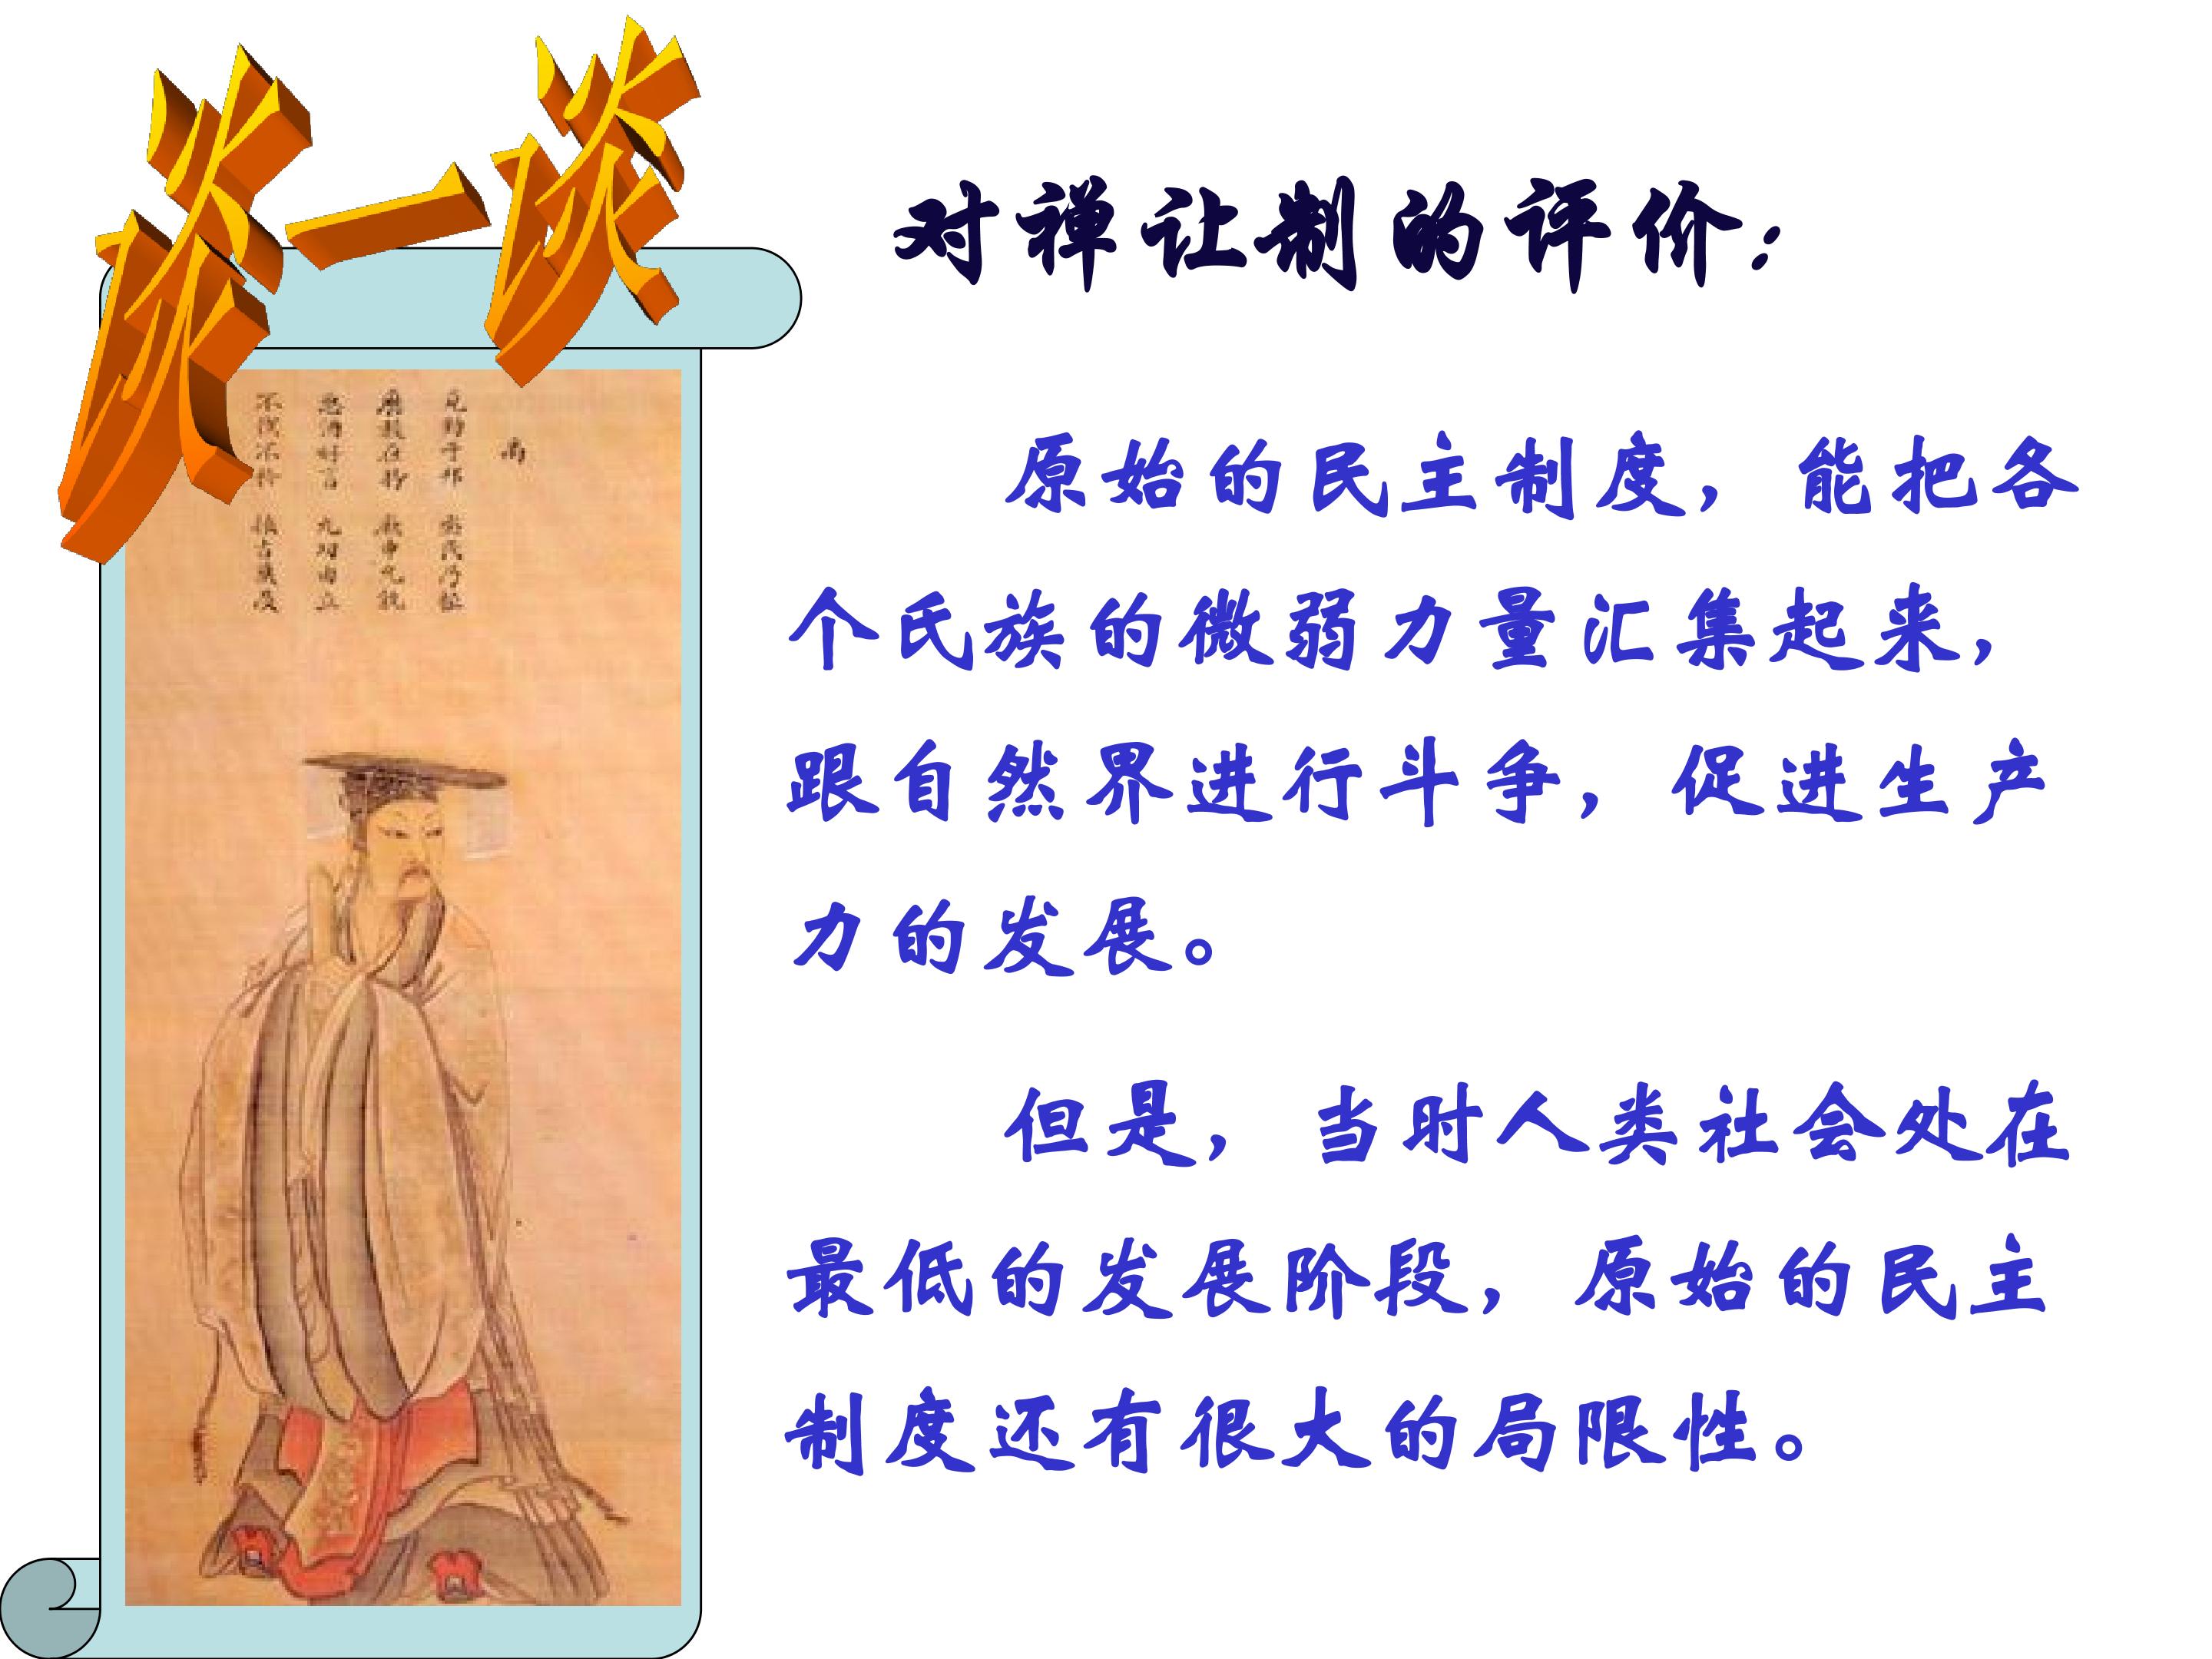 谈一谈
对禅让制的评价：
原始的民主制度，能把各
个氏族的微弱力量汇集起来，
跟自然界进行斗争，促进生产
力的发展。
但是，当时人类社会处在
最低的发展阶段，原始的民主
制度还有很大的局限性。
克勤于邦 烝民乃粒